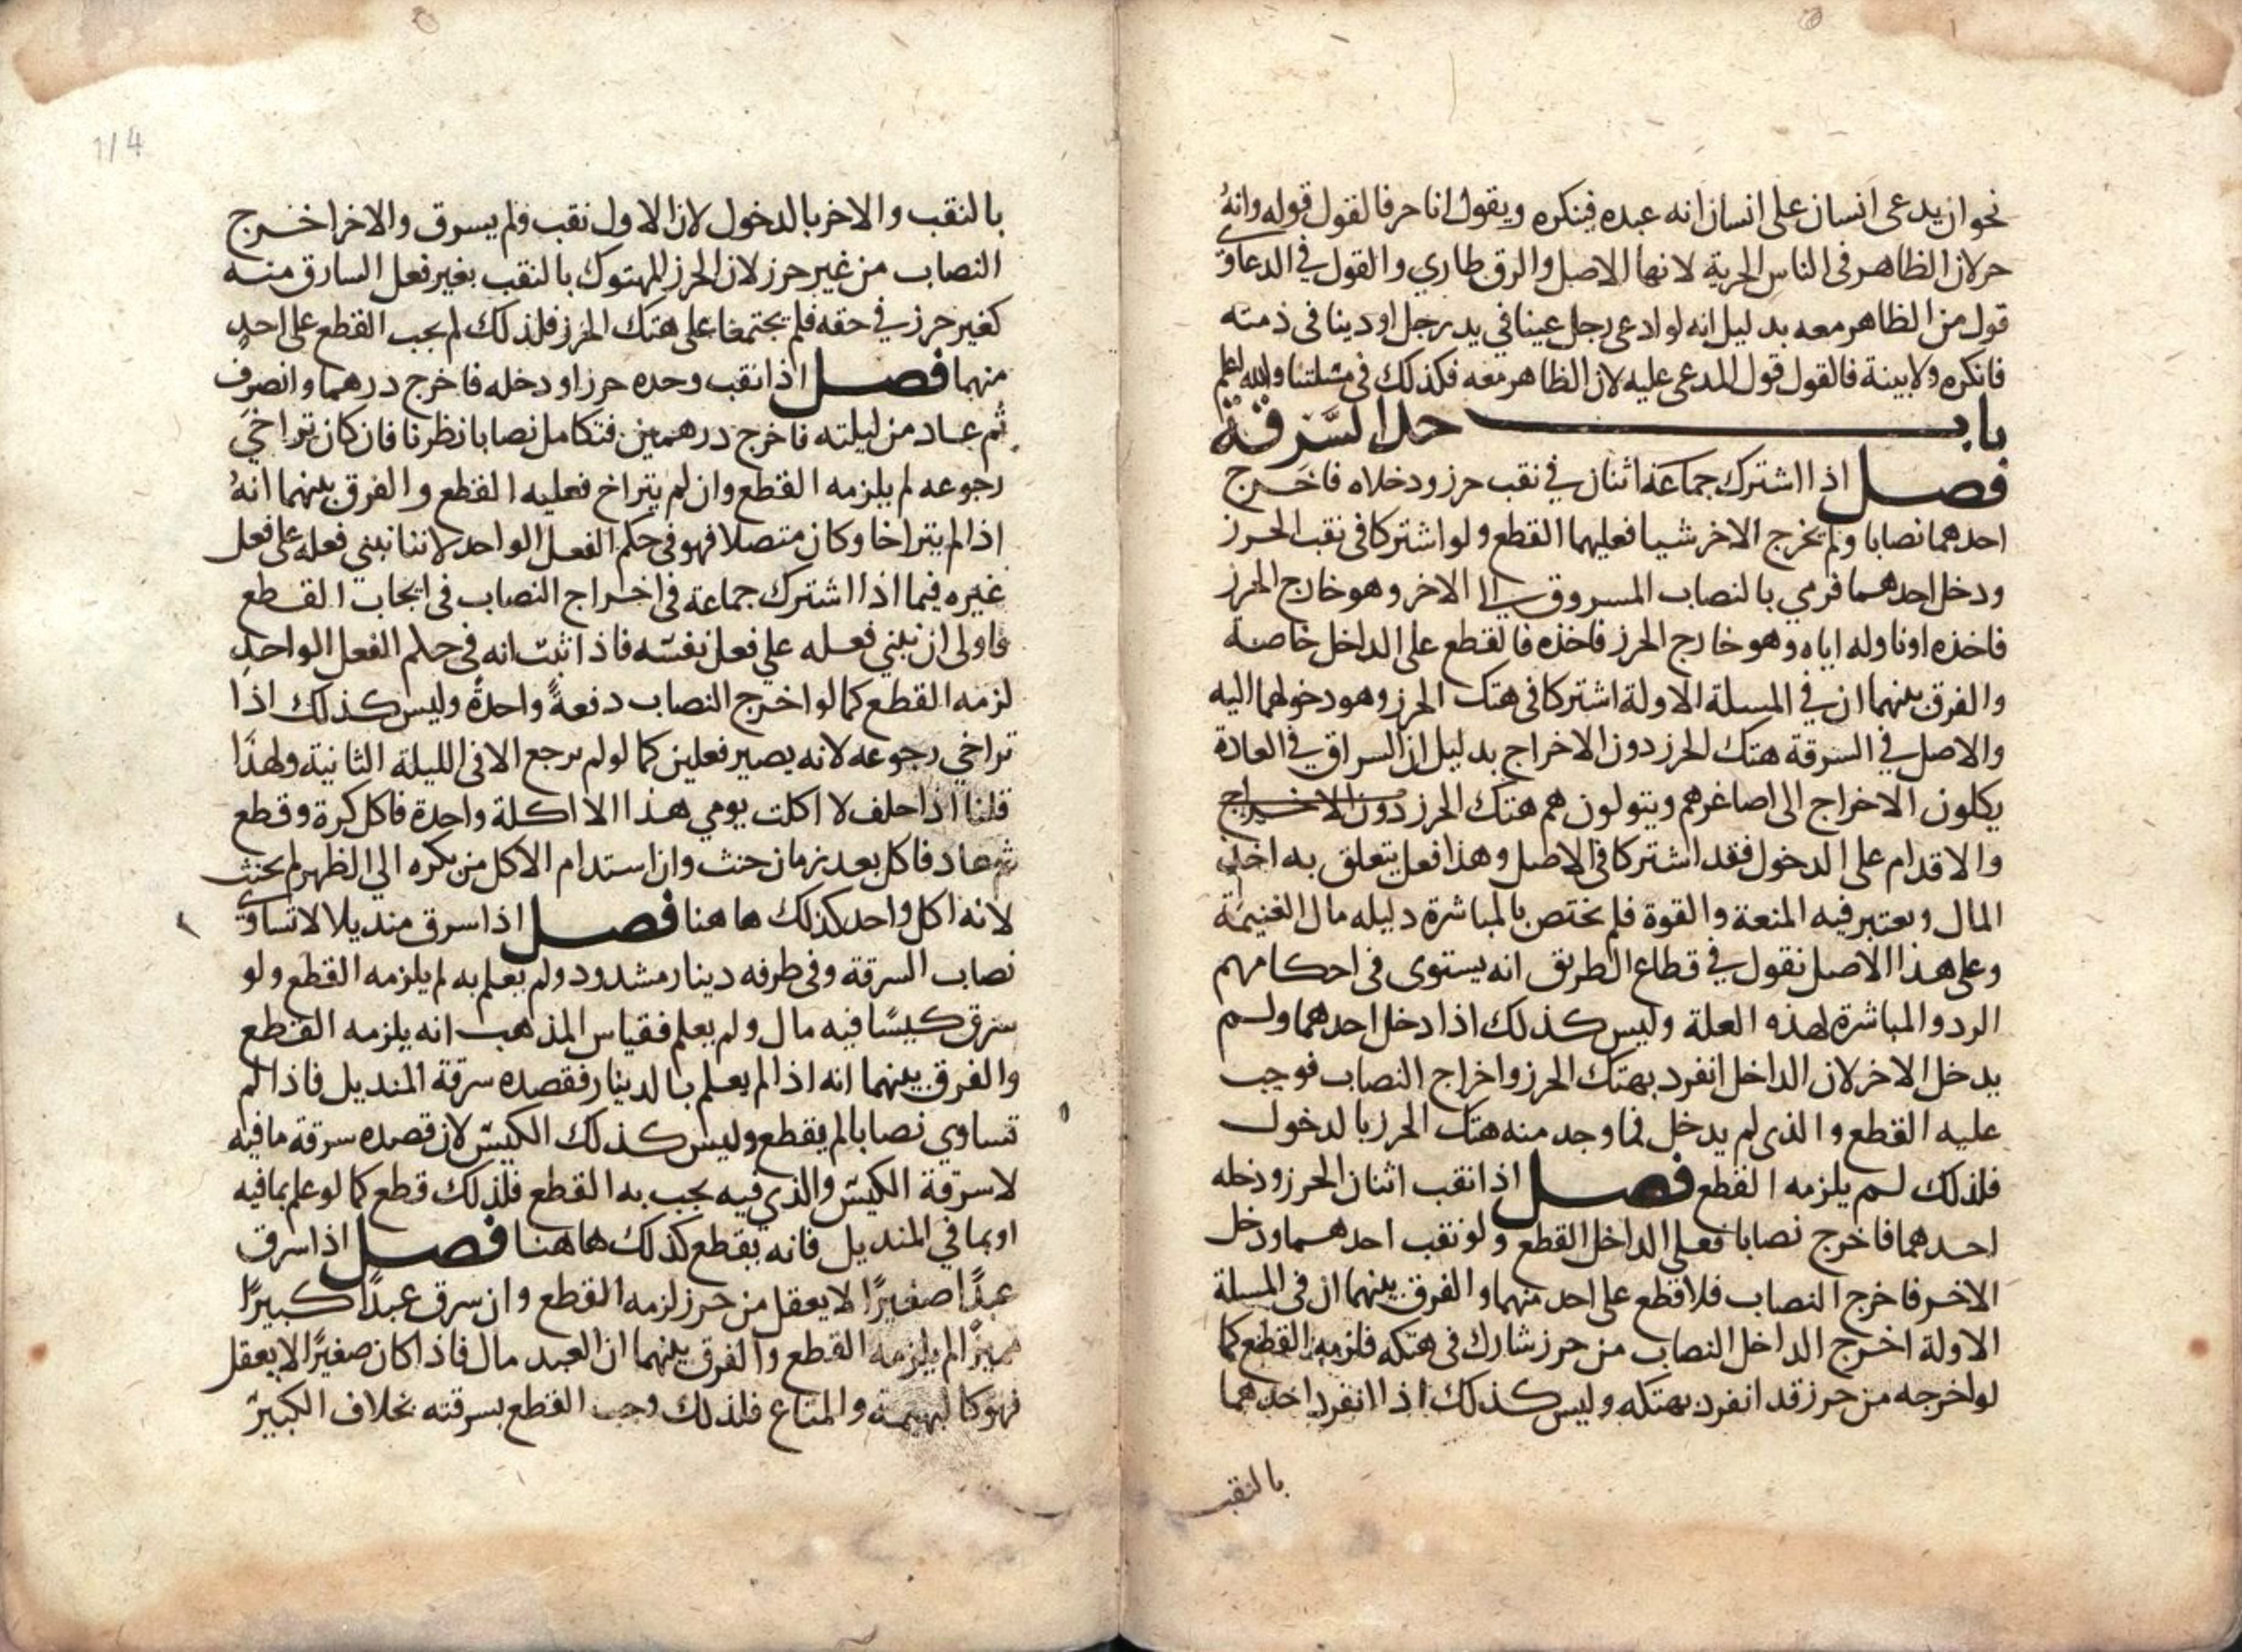 نحو ان يدعى انسان على انسان انه عبده فينكره ويقول انا حر فالقول قوله وانهُ
حر لان الظاهر فى الناس الحرية لانها الاصل والرق طاري والقول في الدعاوى
قول من الظاهر معه بدليل انه لو ادعى رجل عينا في يد رجل او دينا فى ذمته
فانكره ولا بينة فالقول قول المدعى عليه لان الظاهر معه فكذلك فى مسئلتنا والله اعلم
باب حد السَّرقة
فصل اذا اشترك جماعة اثنان في نقب حرز ودخلاه فاخرج
احدهما نصابا ولم يخرج الاخر شيا فعليهما القطع ولو اشتركا فى نقب الحرز
ودخل احدهما فرمي بالنصاب المسروق الى الاخر وهو خارج الحرز
فاخذه او ناوله اياه وهو خارج الحرز فاخذه فالقطع على الداخل خاصة
والفرق بينهما ان في المسلة الاولة اشتركا فى هتك الحرز وهو دخولهما اليه
والاصل في السرقة هتك الحرز دون الاخراج بدليل ان السراق في العادة
يكلون الاخراج الى اصاغرهم ويتولون هم هتك الحرز دون الاخراج
والاقدام على الدخول فقد اشتركا فى الاصل وهذا فعل يتعلق به اخذ
المال ويعتبر فيه المنعة والقوة فلم يختص بالمباشرة دليله مال الغنيمة
وعلى هذا الاصل نقول في قطاع الطريق انه يستوى فى احكامهم
الردو المباشرة لهذه العلة وليس كذلك اذا دخل احدهما ولم
يدخل الاخر لان الداخل انفرد بهتك الحرز واخراج النصاب فوجب
عليه القطع والذى لم يدخل فما وجد منه هتك الحرز بالدخول
فلذلك لم يلزمه القطع فصل اذا نقب اثنان الحرز ودخله
احدهما فاخرج نصابا فعلى الداخل القطع ولو نقب احدهما ودخل
الاخر فاخرج النصاب فلا قطع على احد منهما والفرق بينهما ان فى المسلة
الاولة اخرج الداخل النصاب من حرز شارك فى هتكه فلزمه القطع كما
لو اخرجه من حرز قد انفرد بهتكه وليس كذلك اذا انفرد احدهما
بالنقب
1/4
بالنقب والاخر بالدخول لان الاول نقب فلم يسرق والاخر اخرج
النصاب من غير حرز لان الحرز المهتوك بالنقب بغير فعل السارق منه
كغير حرز في حقه فلم يجتمعا على هتك الحرز فلذلك لم يجب القطع على احدٍ
منهما فصل اذا نقب وحده حرزا ودخله فاخرج درهما وانصرف
ثم عاد من ليلته فاخرج درهمين فتكامل نصابا نظرنا فان كان تراخي
رجوعه لم يلزمه القطع وان لم يتراخ فعليه القطع والفرق بينهما انهُ
اذا لم يتراخا وكان متصلا فهو فى حكم الفعل الواحد لاننا نبني فعله على فعل
غيره فيما اذا اشترك جماعة فى اخراج النصاب فى ايجاب القطع
فاولى ان نبني فعله علي فعل نفسه فاذا ثبت انه فى حكم الفعل الواحدِ
لزمه القطع كما لو اخرج النصاب دفعةً واحدةً وليس كذلك اذا
تراخي رجوعه لانه يصير فعلين كما لو لم يرجع الا فى الليلة الثانية ولهذا
قلنا اذا حلف لا اكلت يومي هذا الا اكلة واحدة فاكل كرة وقطع
ثم عاد فاكل بعد زمان حنث وان استدام الاكل من بكره الي الظهر لم يحنث
لانه اكل واحد كذلك هاهنا فصل اذا سرق منديلا لا تساوى
نصاب السرقة وفى طرفه دينار مشدود ولم يعلم به لم يلزمه القطع ولو
سرق كيسًا فيه مال ولم يعلم فقياس المذهب انه يلزمه القطع
والفرق بينهما انه اذا لم يعلم بالدينار فقصده سرقة المنديل فاذا لم
تساوي نصابا لم يقطع وليس كذلك الكيس لان قصده سرقة ما فيه
لا سرقة الكيس والذي فيه يجب به القطع فلذلك قطع كما لو علم بما فيه
او بما في المنديل فانه يقطع كذلك هاهنا فصل اذا سرق
عبدًا صغيرًا لا يعقل من حرز لزمه القطع وان سرق عبدًا كبيرًا
مميزًا لم يلزمه القطع والفرق بينهما ان العبد مال فاذا كان صغيرًا لا يعقل
فهو كالبهيمة والمتاع فلذلك وجب القطع بسرقته بخلاف الكبير